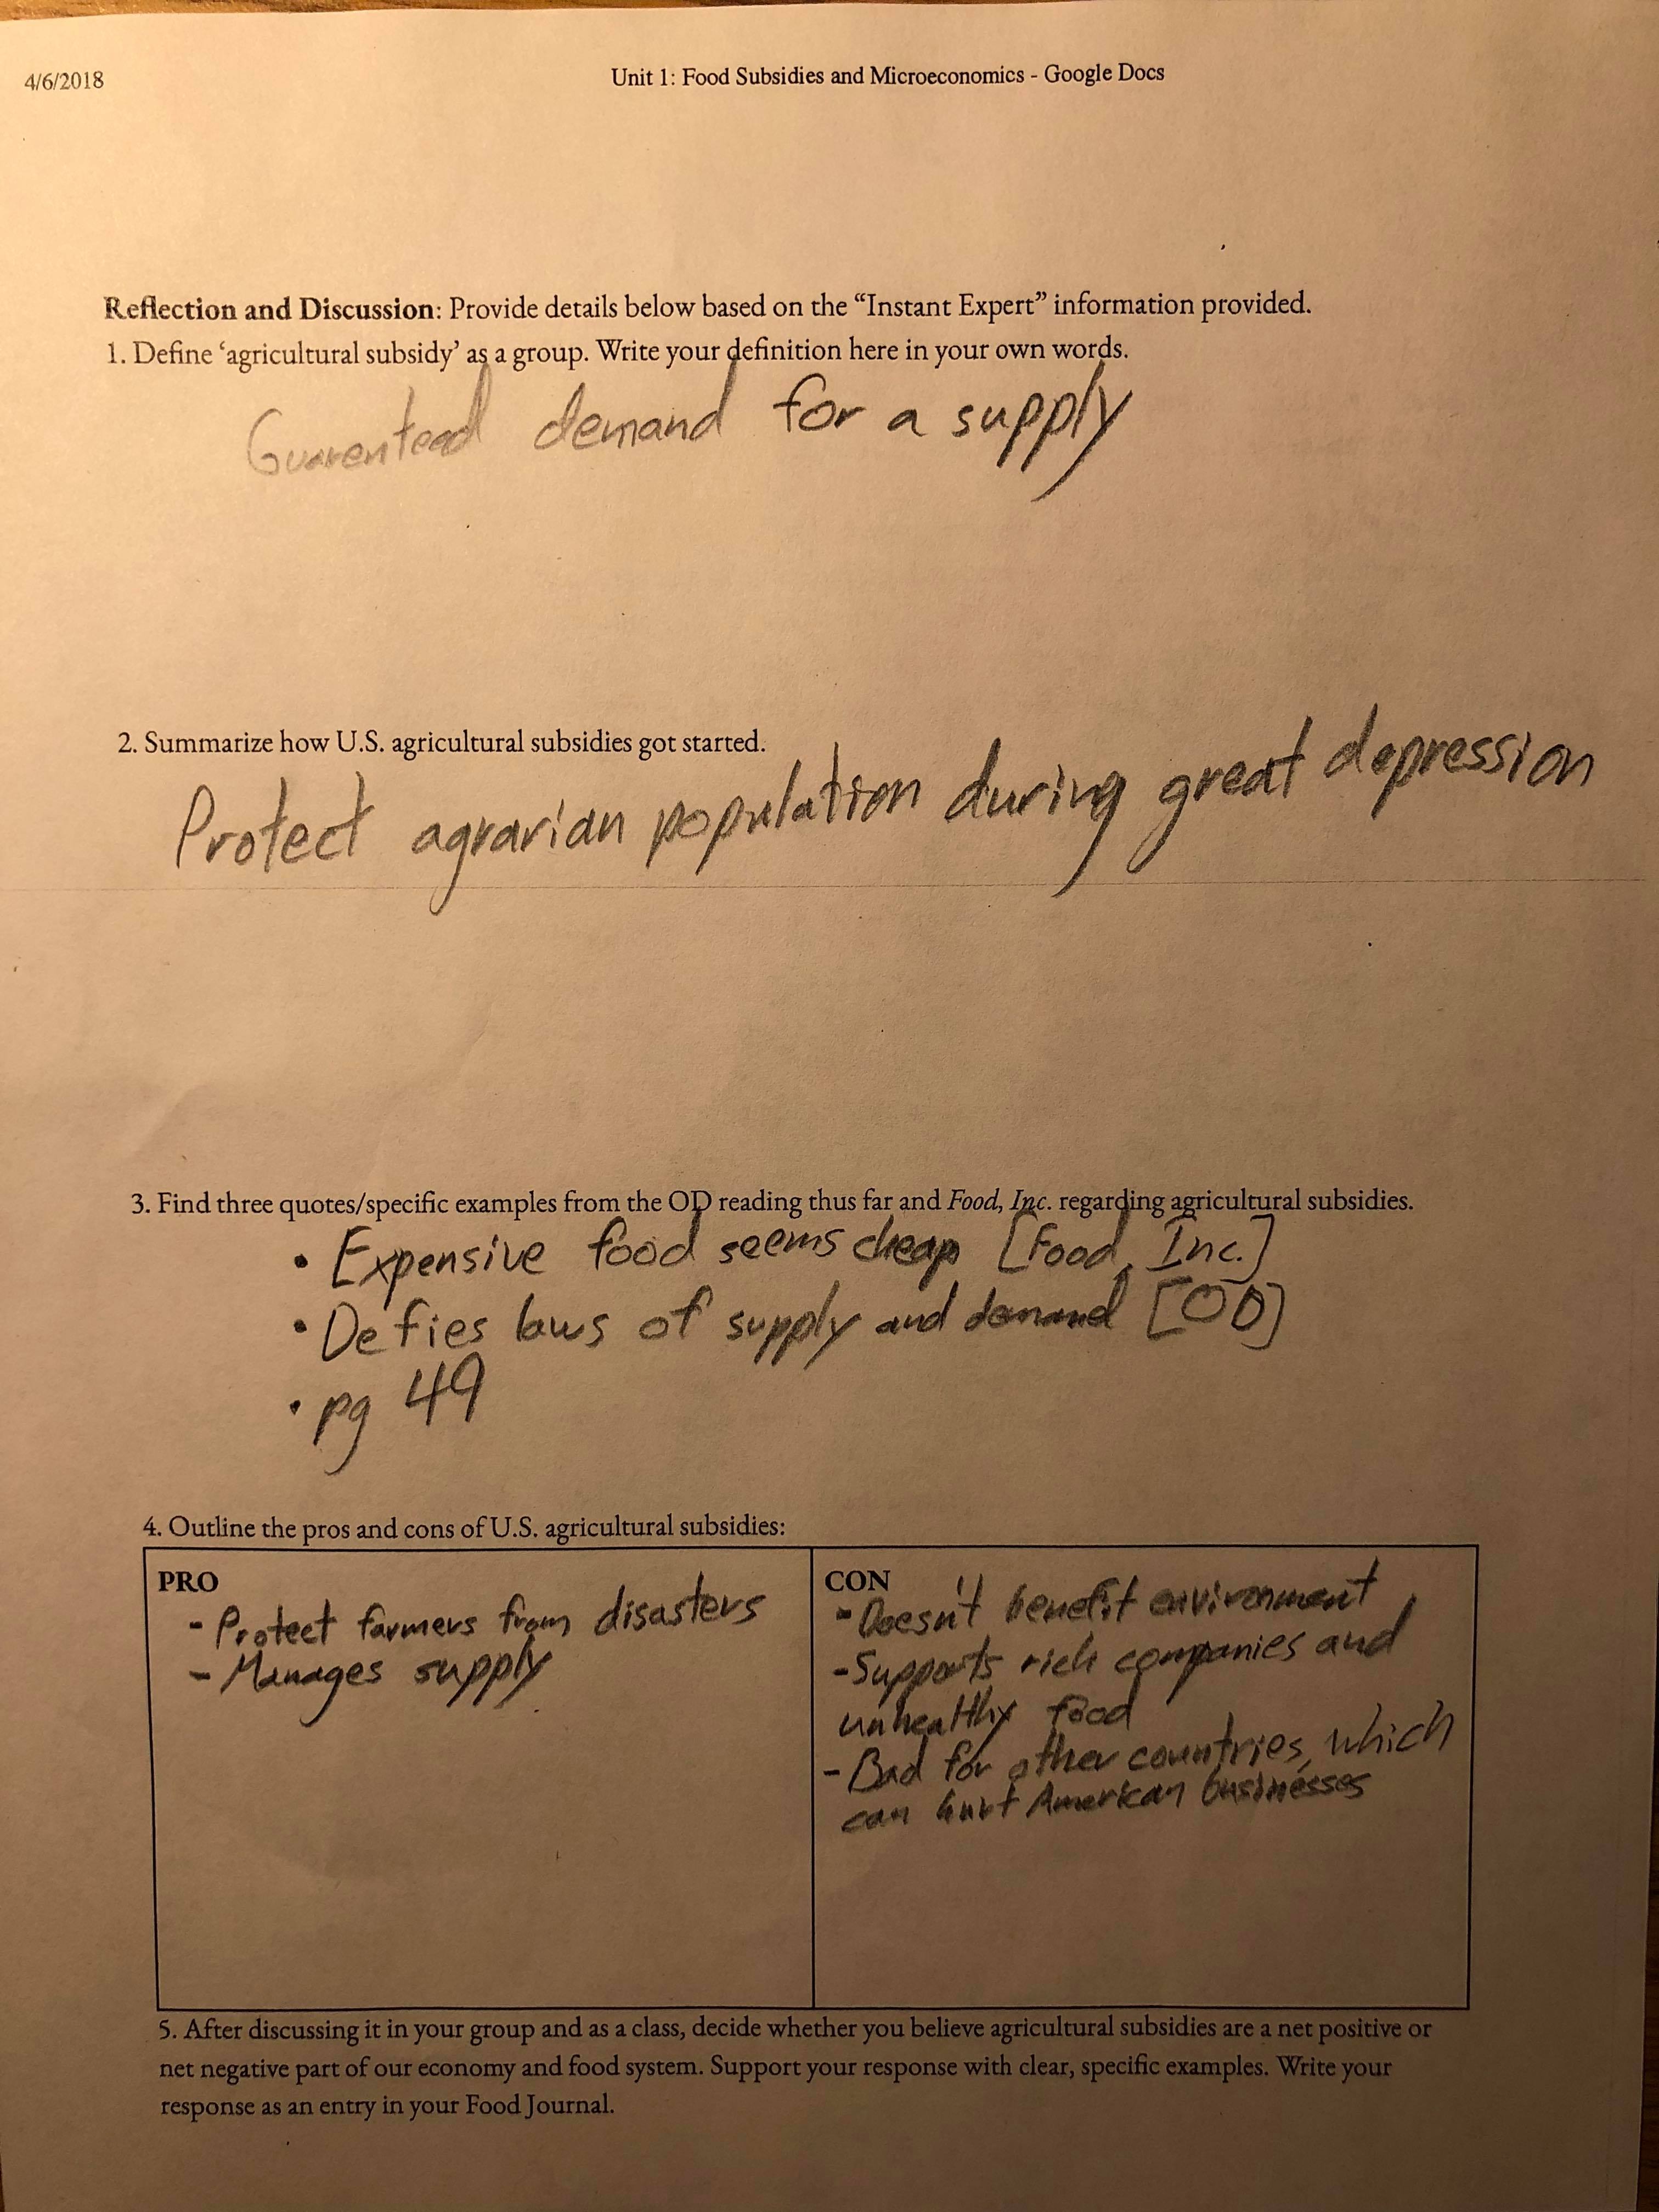 4/6/2018
Unit 1: Food Subsidies and Microeconomics - Google Docs
Reflection and Discussion: Provide details below based on the “Instant Expert” information provided.
1. Define ‘agricultural subsidy’ as a group. Write your definition here in your own words.
Guarenteed demand for a supply
2. Summarize how U.S. agricultural subsidies got started.
Protect agrarian population during great depression
3. Find three quotes/specific examples from the OD reading thus far and Food, Inc. regarding agricultural subsidies.
• Expensive food seems cheap [Food, Inc.]
• Defies laws of supply and demand [OD]
• pg 49
4. Outline the pros and cons of U.S. agricultural subsidies:
PRO
- Protect farmers from disasters
- Manages supply
CON
- Doesn't benefit environment
- Supports rich companies and
unhealthy food
- Bad for other countries, which
can hurt American businesses
5. After discussing it in your group and as a class, decide whether you believe agricultural subsidies are a net positive or
net negative part of our economy and food system. Support your response with clear, specific examples. Write your
response as an entry in your Food Journal.